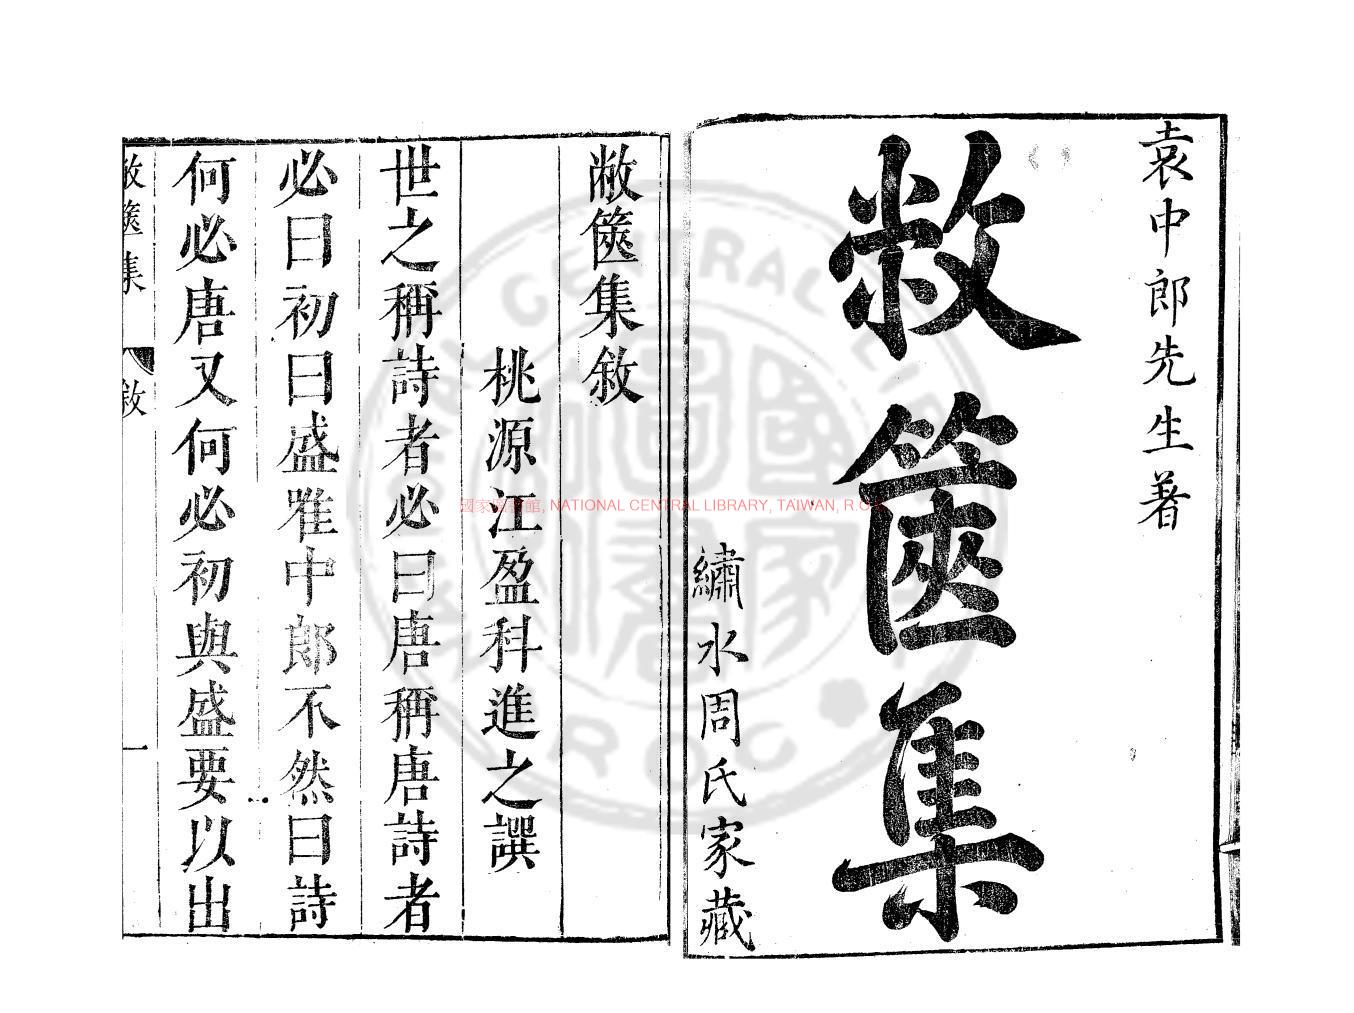 袁中郎先生著
敝篋集
繡水周氏家藏
敝篋集敘
桃源江盈科進之譔
世之稱詩者必曰唐稱唐詩者
必曰初曰盛唯中郎不然曰詩
何必唐又何必初與盛要以出
敝篋集 敘 一
國家圖書館, NATIONAL CENTRAL LIBRARY, TAIWAN, R.O.C